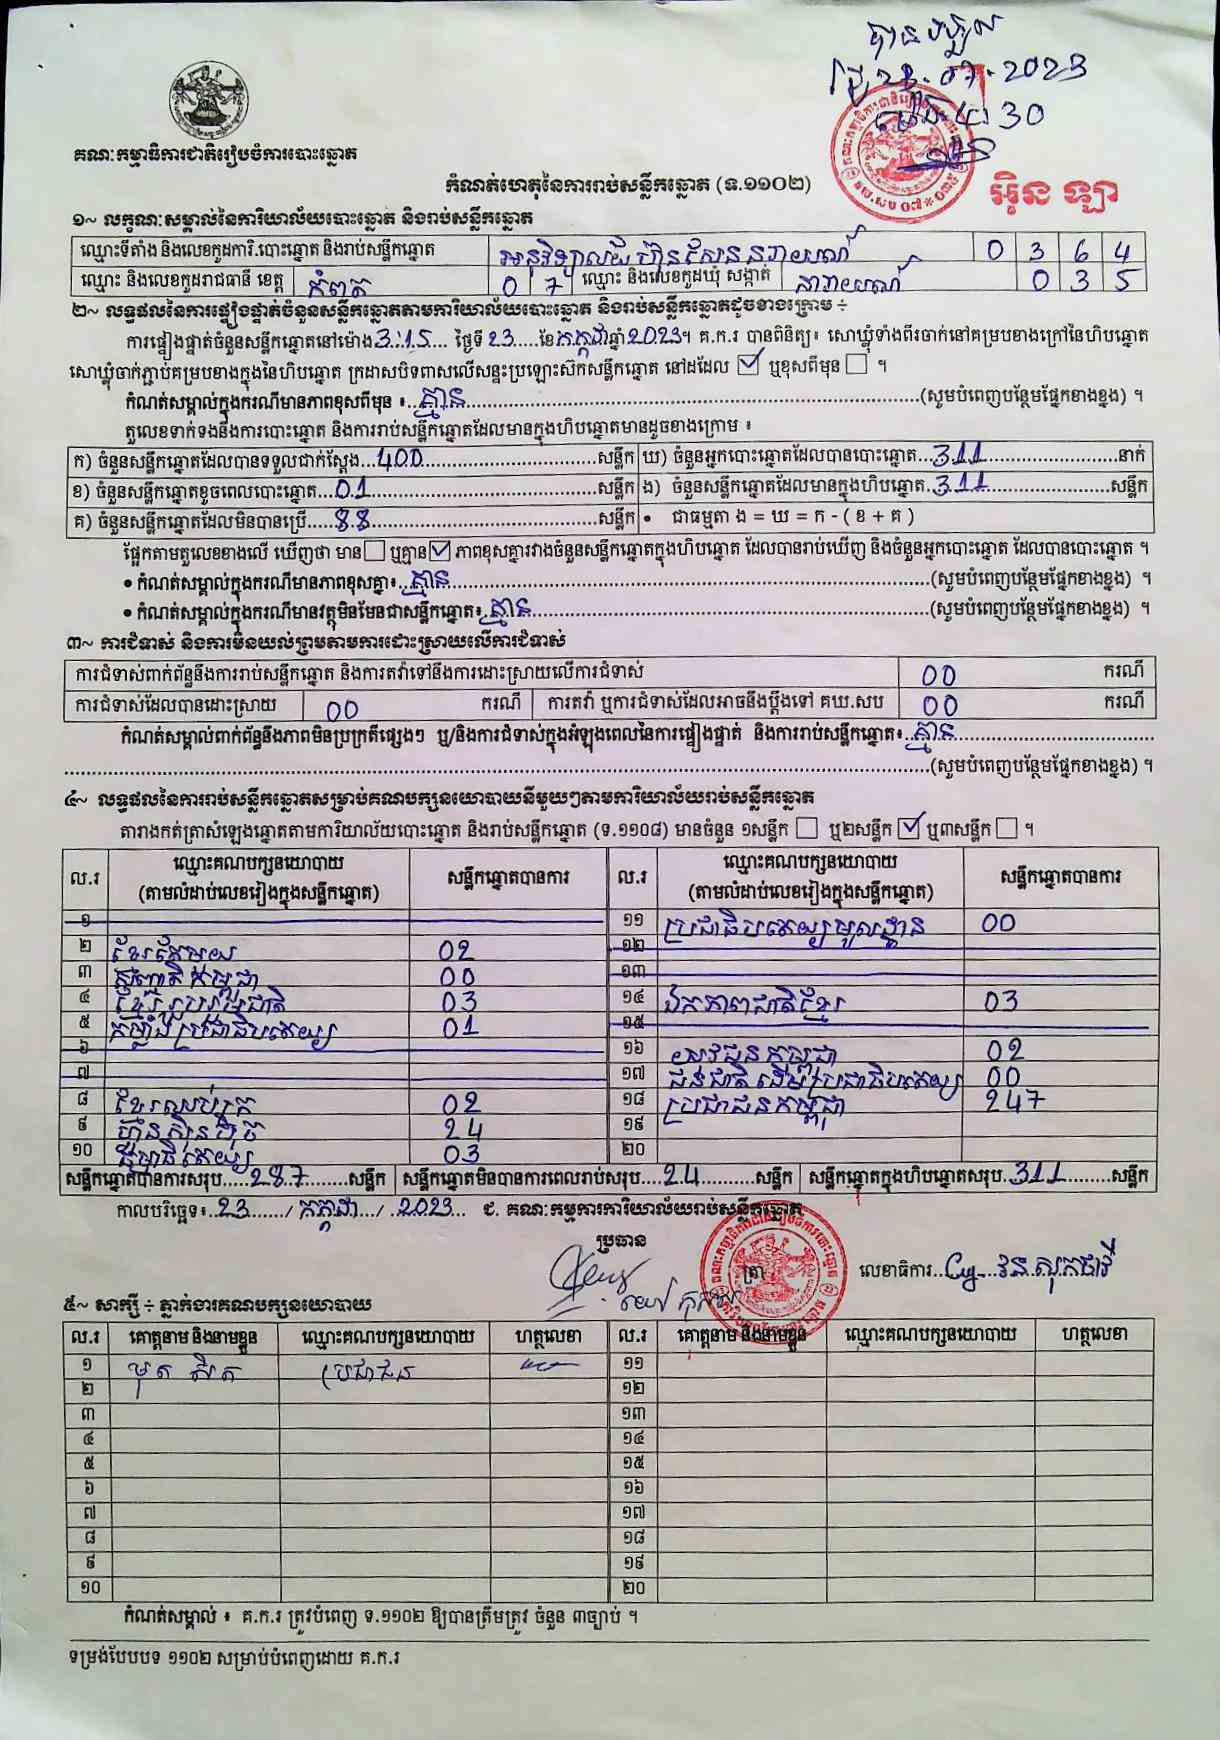 បានទទួល
ថ្ងៃ 23.07.2023
ម៉ោង 4:30
អ៊ិន ឡា
គណៈកម្មាធិការជាតិរៀបចំការបោះឆ្នោត
កំណត់ហេតុនៃការរាប់សន្លឹកឆ្នោត (ទ.១១០២)
១~ លក្ខណៈសម្គាល់នៃការិយាល័យបោះឆ្នោត និងរាប់សន្លឹកឆ្នោត
ឈ្មោះទីតាំង និងលេខកូដការិ.បោះឆ្នោត និងរាប់សន្លឹកឆ្នោត អនុវិទ្យាល័យ ហ៊ុន សែន នារាយណ៍ 0 3 6 4
ឈ្មោះ និងលេខកូដរាជធានី ខេត្ត កំពត 0 7 ឈ្មោះ និងលេខកូដឃុំ សង្កាត់ នារាយណ៍ 0 3 5
២~ លទ្ធផលនៃការផ្ទៀងផ្ទាត់ចំនួនសន្លឹកឆ្នោតតាមការិយាល័យបោះឆ្នោត និងរាប់សន្លឹកឆ្នោតដូចខាងក្រោម ÷
ការផ្ទៀងផ្ទាត់ចំនួនសន្លឹកឆ្នោតនៅម៉ោង 3:15 ថ្ងៃទី 23 ខែ កក្កដា ឆ្នាំ 2023។ គ.ក.រ បានពិនិត្យ៖ សោឃ្លុំទាំងពីរចាក់នៅគម្របខាងក្រៅនៃហិបឆ្នោត
សោឃ្លុំចាក់ភ្ជាប់គម្របខាងក្នុងនៃហិបឆ្នោត ក្រដាសបិទពាសលើសន្ទះប្រឡោះស៊កសន្លឹកឆ្នោត នៅដដែល ☑ ឬខុសពីមុន ☐ ។
កំណត់សម្គាល់ក្នុងករណីមានភាពខុសពីមុន ៖ គ្មាន (សូមបំពេញបន្ថែមផ្នែកខាងខ្នង) ។
តួលេខទាក់ទងនឹងការបោះឆ្នោត និងការរាប់សន្លឹកឆ្នោតដែលមានក្នុងហិបឆ្នោតមានដូចខាងក្រោម ៖
ក) ចំនួនសន្លឹកឆ្នោតដែលបានទទួលជាក់ស្តែង 400 សន្លឹក ឃ) ចំនួនអ្នកបោះឆ្នោតដែលបានបោះឆ្នោត 311 នាក់
ខ) ចំនួនសន្លឹកឆ្នោតខូចពេលបោះឆ្នោត 01 សន្លឹក ង) ចំនួនសន្លឹកឆ្នោតដែលមានក្នុងហិបឆ្នោត 311 សន្លឹក
គ) ចំនួនសន្លឹកឆ្នោតដែលមិនបានប្រើ 88 សន្លឹក • ជាធម្មតា ង = ឃ = ក - ( ខ + គ )
ផ្អែកតាមតួលេខខាងលើ ឃើញថា មាន ☐ ឬគ្មាន ☑ ភាពខុសគ្នារវាងចំនួនសន្លឹកឆ្នោតក្នុងហិបឆ្នោត ដែលបានរាប់ឃើញ និងចំនួនអ្នកបោះឆ្នោត ដែលបានបោះឆ្នោត ។
• កំណត់សម្គាល់ក្នុងករណីមានភាពខុសគ្នា៖ គ្មាន (សូមបំពេញបន្ថែមផ្នែកខាងខ្នង) ។
• កំណត់សម្គាល់ក្នុងករណីមានវត្ថុមិនមែនជាសន្លឹកឆ្នោត៖ គ្មាន (សូមបំពេញបន្ថែមផ្នែកខាងខ្នង) ។
៣~ ការជំទាស់ និងការមិនយល់ព្រមតាមការដោះស្រាយលើការជំទាស់
ការជំទាស់ពាក់ព័ន្ធនឹងការរាប់សន្លឹកឆ្នោត និងការតវ៉ាទៅនឹងការដោះស្រាយលើការជំទាស់ 00 ករណី
ការជំទាស់ដែលបានដោះស្រាយ 00 ករណី ការតវ៉ា ឬការជំទាស់ដែលអាចនឹងប្តឹងទៅ គឃ.សប 00 ករណី
កំណត់សម្គាល់ពាក់ព័ន្ធនឹងភាពមិនប្រក្រតីផ្សេងៗ ឬ/និងការជំទាស់ក្នុងអំឡុងពេលនៃការផ្ទៀងផ្ទាត់ និងការរាប់សន្លឹកឆ្នោត៖ គ្មាន
(សូមបំពេញបន្ថែមផ្នែកខាងខ្នង) ។
៤~ លទ្ធផលនៃការរាប់សន្លឹកឆ្នោតសម្រាប់គណបក្សនយោបាយនីមួយៗតាមការិយាល័យរាប់សន្លឹកឆ្នោត
តារាងកត់ត្រាសំឡេងឆ្នោតតាមការិយាល័យបោះឆ្នោត និងរាប់សន្លឹកឆ្នោត (ទ.១១០៨) មានចំនួន ១សន្លឹក ☐ ឬ២សន្លឹក ☑ ឬ៣សន្លឹក ☐ ។
ល.រ ឈ្មោះគណបក្សនយោបាយ (តាមលំដាប់លេខរៀងក្នុងសន្លឹកឆ្នោត) សន្លឹកឆ្នោតបានការ ល.រ ឈ្មោះគណបក្សនយោបាយ (តាមលំដាប់លេខរៀងក្នុងសន្លឹកឆ្នោត) សន្លឹកឆ្នោតបានការ
១ ១១ ប្រជាធិបតេយ្យមូលដ្ឋាន 00
២ ខ្មែរតែមួយ 02 ១២
៣ ជាតិកម្ពុជា 00 ១៣
៤ ខ្មែររួបរួមជាតិ 03 ១៤ ឯកភាពជាតិខ្មែរ 03
៥ កម្លាំងប្រជាធិបតេយ្យ 01 ១៥
៦ ១៦ យុវជនកម្ពុជា 02
៧ ១៧ ជនជាតិដើមប្រជាធិបតេយ្យ 00
៨ ខ្មែរឈប់ក្រ 02 ១៨ ប្រជាជនកម្ពុជា 247
៩ ហ៊្វុនស៊ិនប៉ិច 24 ១៩
១០ ធម្មាធិបតេយ្យ 03 ២០
សន្លឹកឆ្នោតបានការសរុប 287 សន្លឹក សន្លឹកឆ្នោតមិនបានការពេលរាប់សរុប 24 សន្លឹក សន្លឹកឆ្នោតក្នុងហិបឆ្នោតសរុប 311 សន្លឹក
កាលបរិច្ឆេទ៖ 23 / កក្កដា / 2023 ជ. គណៈកម្មការការិយាល័យរាប់សន្លឹកឆ្នោត
ប្រធាន ត្រា លេខាធិការ វន សុភាវី
៥~ សាក្សី ÷ ភ្នាក់ងារគណបក្សនយោបាយ
ល.រ គោត្តនាម និងនាមខ្លួន ឈ្មោះគណបក្សនយោបាយ ហត្ថលេខា ល.រ គោត្តនាម និងនាមខ្លួន ឈ្មោះគណបក្សនយោបាយ ហត្ថលេខា
១ មុត សិត ប្រជាជន ១១
២ ១២
៣ ១៣
៤ ១៤
៥ ១៥
៦ ១៦
៧ ១៧
៨ ១៨
៩ ១៩
១០ ២០
កំណត់សម្គាល់ ៖ គ.ក.រ ត្រូវបំពេញ ទ.១១០២ ឱ្យបានត្រឹមត្រូវ ចំនួន ៣ច្បាប់ ។
ទម្រង់បែបបទ ១១០២ សម្រាប់បំពេញដោយ គ.ក.រ